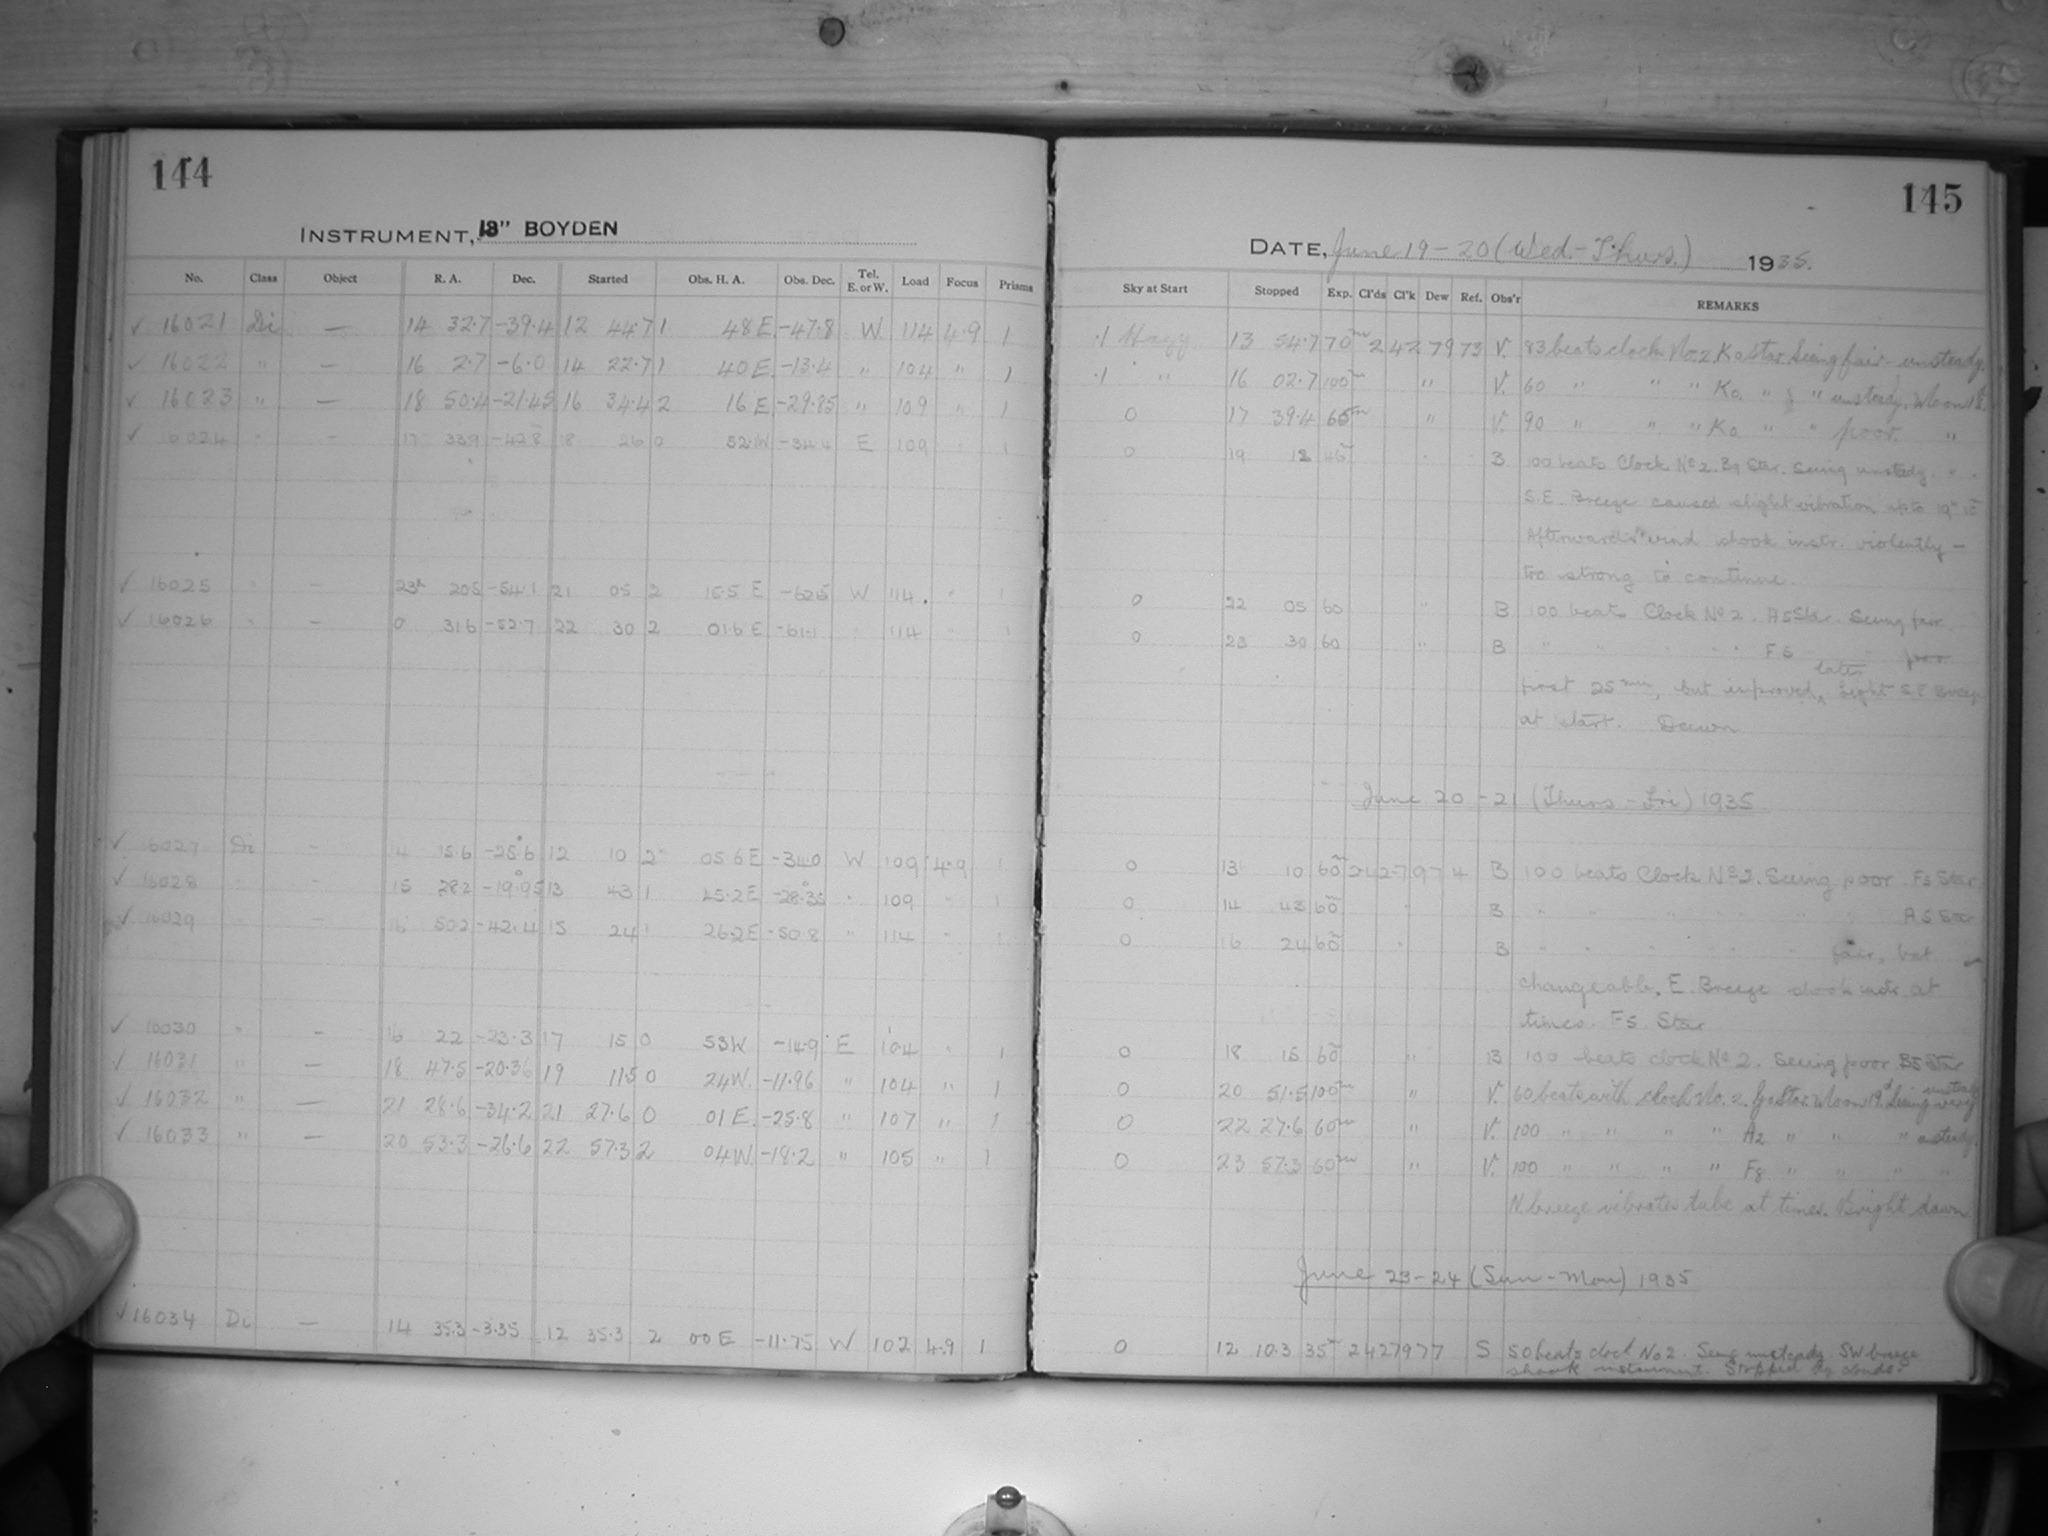 144
INSTRUMENT, 13" BOYDEN
No. Class Object R. A. Dec. Started Obs. H. A. Obs. Dec. Tel. E. or W. Load Focus Prisms
✓ 16021 Di — 14 32.7 -39.4 12 44.7 1 48 E -47.8 W 114 4.9 1
✓ 16022 " — 16 2.7 -6.0 14 22.7 1 40 E -13.4 " 104 " 1
✓ 16023 " — 18 50.4 -21.45 16 34.4 2 16 E -29.85 " 109 " 1
✓ 16024 " - 17 339 -42.8 18 26 0 52.1W -34.4 E 109 " 1
✓ 16025 " - 23h 20.5 -54.1 21 05 2 15.5 E -62.5 W 114. " 1
✓ 16026 " - 0 31.6 -52.7 22 30 2 01.6 E -61.1 " 114 " 1
✓ 16027 Di - 14 15.6 -25.6 12 10 2 05.6 E -34.0 W 109 4.9 1
✓ 16028 " - 15 28.2 -19.95 13 43 1 45.2 E -28.35 " 109 " 1
✓ 16029 " - 16 50.2 -42.4 15 24 1 26.2 E -50.8 " 114 " 1
✓ 16030 " - 16 22 -23.3 17 15 0 53 W -14.9 E 104 " 1
✓ 16031 " — 18 47.5 -20.36 19 11.5 0 24 W. -11.96 " 104 " 1
✓ 16032 " — 21 28.6 -34.2 21 27.6 0 01 E. -25.8 " 107 " 1
✓ 16033 " — 20 53.3 -26.6 22 57.3 2 04 W. -18.2 " 105 " 1
✓ 16034 Di — 14 35.3 -3.35 12 35.3 2 00 E -11.75 W 102 4.9 1
145
DATE, June 19-20 (Wed.-Thurs.) 1935.
Sky at Start Stopped Exp. Cl'ds Cl'k Dew Ref. Obs'r REMARKS
.1 Hazy 13 54.7 70m 2427973 V. 83 beats clock No. 2. K0 star. Seeing fair - unsteady.
.1 " 16 02.7 100m " V. 60 " " " K0 " " unsteady. Moon
0 17 39.4 65m " V. 90 " " " K0 " " poor. "
0 19 12 46m " B 100 beats Clock No 2. B9 Star. Seeing unsteady. "
S.E. Breeze caused slight vibration up to 19h 10m
Afterwards wind shook instr. violently —
too strong to continue.
0 22 05 60 " B 100 beats Clock No 2. A5 Star. Seeing fair
0 23 30 60 " B " " " " F5 " " poor
first 25 min, but improved later, Light S.E Breeze
at start. Dawn
June 20-21 (Thurs-Fri) 1935
0 13 10 60m 2427974 B 100 beats Clock No 2. Seeing poor. F5 Star
0 14 43 60m " B " " " " " " A5 Star
0 16 24 60m " B " " " " " fair, but
changeable, E. Breeze shook instr. at
times. F5 Star
0 18 15 60m " B 100 beats clock No 2. Seeing poor B5 Star
0 20 51.5 100m " V. 60 beats with clock No. 2. G0 Star. Moon 19d. Seeing very unsteady
0 22 27.6 60m " V. 100 " " " " A2 " " " unsteady.
0 23 57.3 60m " V. 100 " " " " F8 " " " "
N. breeze vibrates tube at times. Bright dawn
June 23-24 (Sun-Mon) 1935
0 12 10.3 35m 2427977 S 50 beats clock No 2. Seeing unsteady SW breeze
shook instrument. Stopped by clouds.